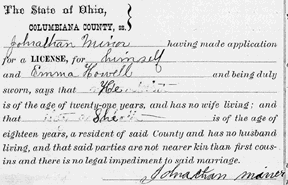 The State of Ohio,
COLUMBIANA COUNTY, ss.
Johnathan Minor having made application
for a LICENSE, for himself
and Emma Howell and being duly
sworn, says that He
is of the age of twenty-one years, and has no wife living: and
that She is of the age of
eighteen years, a resident of said County and has no husband
living, and that said parties are not nearer kin than first cous-
ins and there is no legal impediment to said marriage.
Johnathan miner